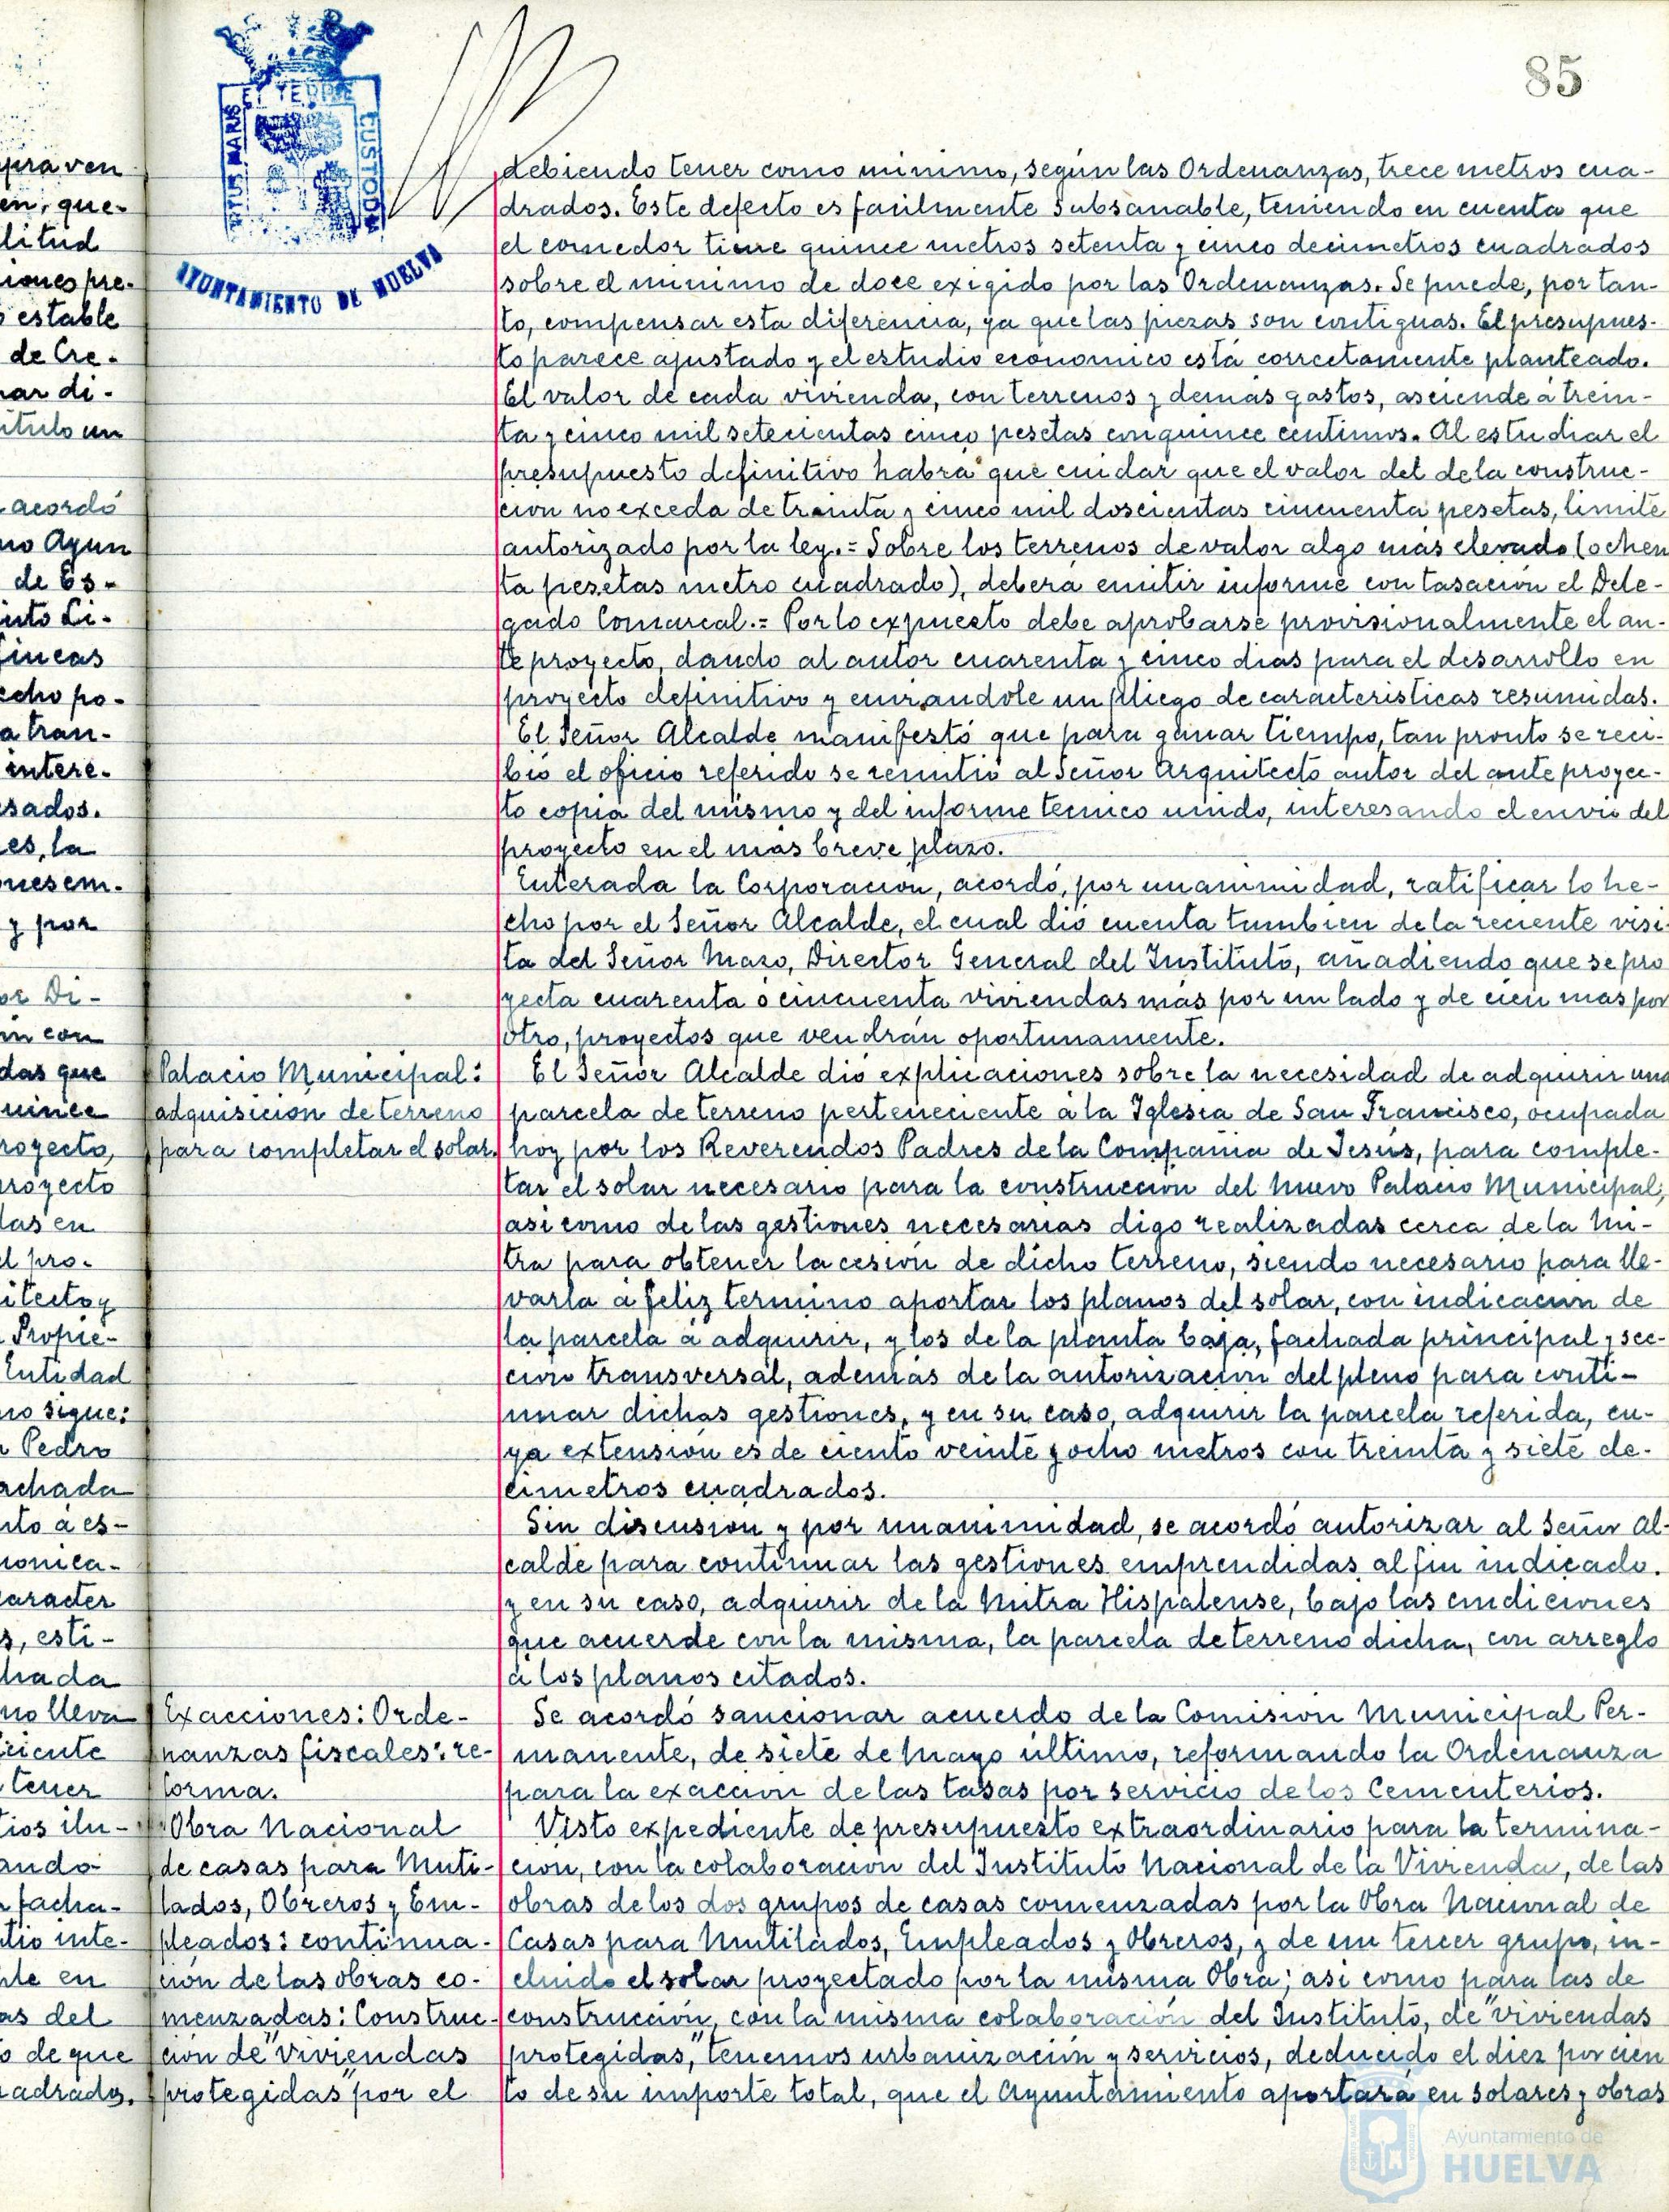 85
PORTUS MARIS ET TERRE CUSTODIA
AYUNTAMIENTO DE HUELVA
debiendo tener como minimo, según las Ordenanzas, trece metros cua-
drados. Este defecto es facilmente subsanable, teniendo en cuenta que
el comedor tiene quince metros setenta y cinco decimetros cuadrados
sobre el minimo de doce exigido por las Ordenanzas. Se puede, por tan-
to, compensar esta diferencia, ya que las piezas son contiguas. El presupues-
to parece ajustado y el estudio economico está correctamente planteado.
El valor de cada vivienda, con terrenos y demás gastos, asciende á trein-
ta y cinco mil setecientas cinco pesetas con quince centimos. Al estudiar el
presupuesto definitivo habrá que cuidar que el valor del de la construc-
cion no exceda de treinta y cinco mil doscientas cincuenta pesetas, limite
autorizado por la ley.= Sobre los terrenos de valor algo más elevado (ochen
ta pesetas metro cuadrado), deberá emitir informe con tasación el Dele-
gado Comarcal.= Por lo expuesto debe aprobarse provisionalmente el an-
te proyecto, dando al autor cuarenta y cinco dias para el desarrollo en
proyecto definitivo y enviandole un pliego de caracteristicas resumidas.
El Señor Alcalde manifestó que para ganar tiempo, tan pronto se reci-
bió el oficio referido se remitió al Señor Arquitecto autor del ante proyec-
to copia del mismo y del informe tecnico unido, interesando el envio del
proyecto en el más breve plazo.
Enterada la Corporación, acordó, por unanimidad, ratificar lo he-
cho por el Señor Alcalde, el cual dió cuenta tambien de la reciente visi-
ta del Señor Mazo, Director General del Instituto, añadiendo que se pro
yecta cuarenta ó cincuenta viviendas más por un lado y de cien mas por
otro, proyectos que vendrán oportunamente.
Palacio Municipal:
adquisición de terreno
para completar el solar.
El Señor Alcalde dió explicaciones sobre la necesidad de adquirir una
parcela de terreno perteneciente á la Iglesia de San Francisco, ocupada
hoy por los Reverendos Padres de la Compañia de Jesús, para comple-
tar el solar necesario para la construccion del nuevo Palacio Municipal,
asi como de las gestiones necesarias digo realizadas cerca de la Mi-
tra para obtener la cesión de dicho terreno, siendo necesario para lle-
varla á feliz termino aportar los planos del solar, con indicacion de
la parcela á adquirir, y los de la planta baja, fachada principal y sec-
cion transversal, además de la autorización del pleno para conti-
nuar dichas gestiones, y en su caso, adquirir la parcela referida, cu-
ya extensión es de ciento veinte y ocho metros con treinta y siete de-
cimetros cuadrados.
Sin discusión y por unanimidad, se acordó autorizar al Señor Al-
calde para continuar las gestiones emprendidas al fin indicado.
y en su caso, adquirir de la Mitra Hispalense, bajo las condiciones
que acuerde con la misma, la parcela de terreno dicha, con arreglo
á los planos citados.
Exacciones: Orde-
nanzas fiscales: re-
forma.
Se acordó sancionar acuerdo de la Comisión Municipal Per-
manente, de siete de Mayo último, reformando la Ordenanza
para la exaccion de las tasas por servicio de los Cementerios.
Obra Nacional
de casas para Muti-
lados, Obreros y Em-
pleados: continua-
ción de las obras co-
menzadas: Construc-
ción de "viviendas
protegidas" por el
Visto expediente de presupuesto extraordinario para la termina-
cion, con la colaboracion del Instituto Nacional de la Vivienda, de las
obras de los dos grupos de casas comenzadas por la Obra Nacional de
Casas para Mutilados, Empleados y Obreros, y de un tercer grupo, in-
cluido el solar proyectado por la misma Obra; asi como para las de
construcción, con la misma colaboración del Instituto, de "viviendas
protegidas," tenemos urbanización y servicios, deducido el diez por cien
to de su importe total, que el Ayuntamiento aportará en solares y obras
pra ven
en, que-
litud
iones pre-
estable
de Cre-
nar di-
itulo un
acordó
no Ayun
de Es-
Li-
fincas
echo po-
a tran-
intere-
sados.
es, la
nes em-
y por
or Di-
con
das que
quince
royecto,
royecto
das en
el pro-
itecto y
Propie-
Entidad
no sigue:
Pedro
achada
nto á es-
monica-
caracter
s, esti-
hada
no lleva
iciente
tener
tios ilu-
ando
facha-
tio inte-
nte en
as del
de que
adrados.
Ayuntamiento de
HUELVA